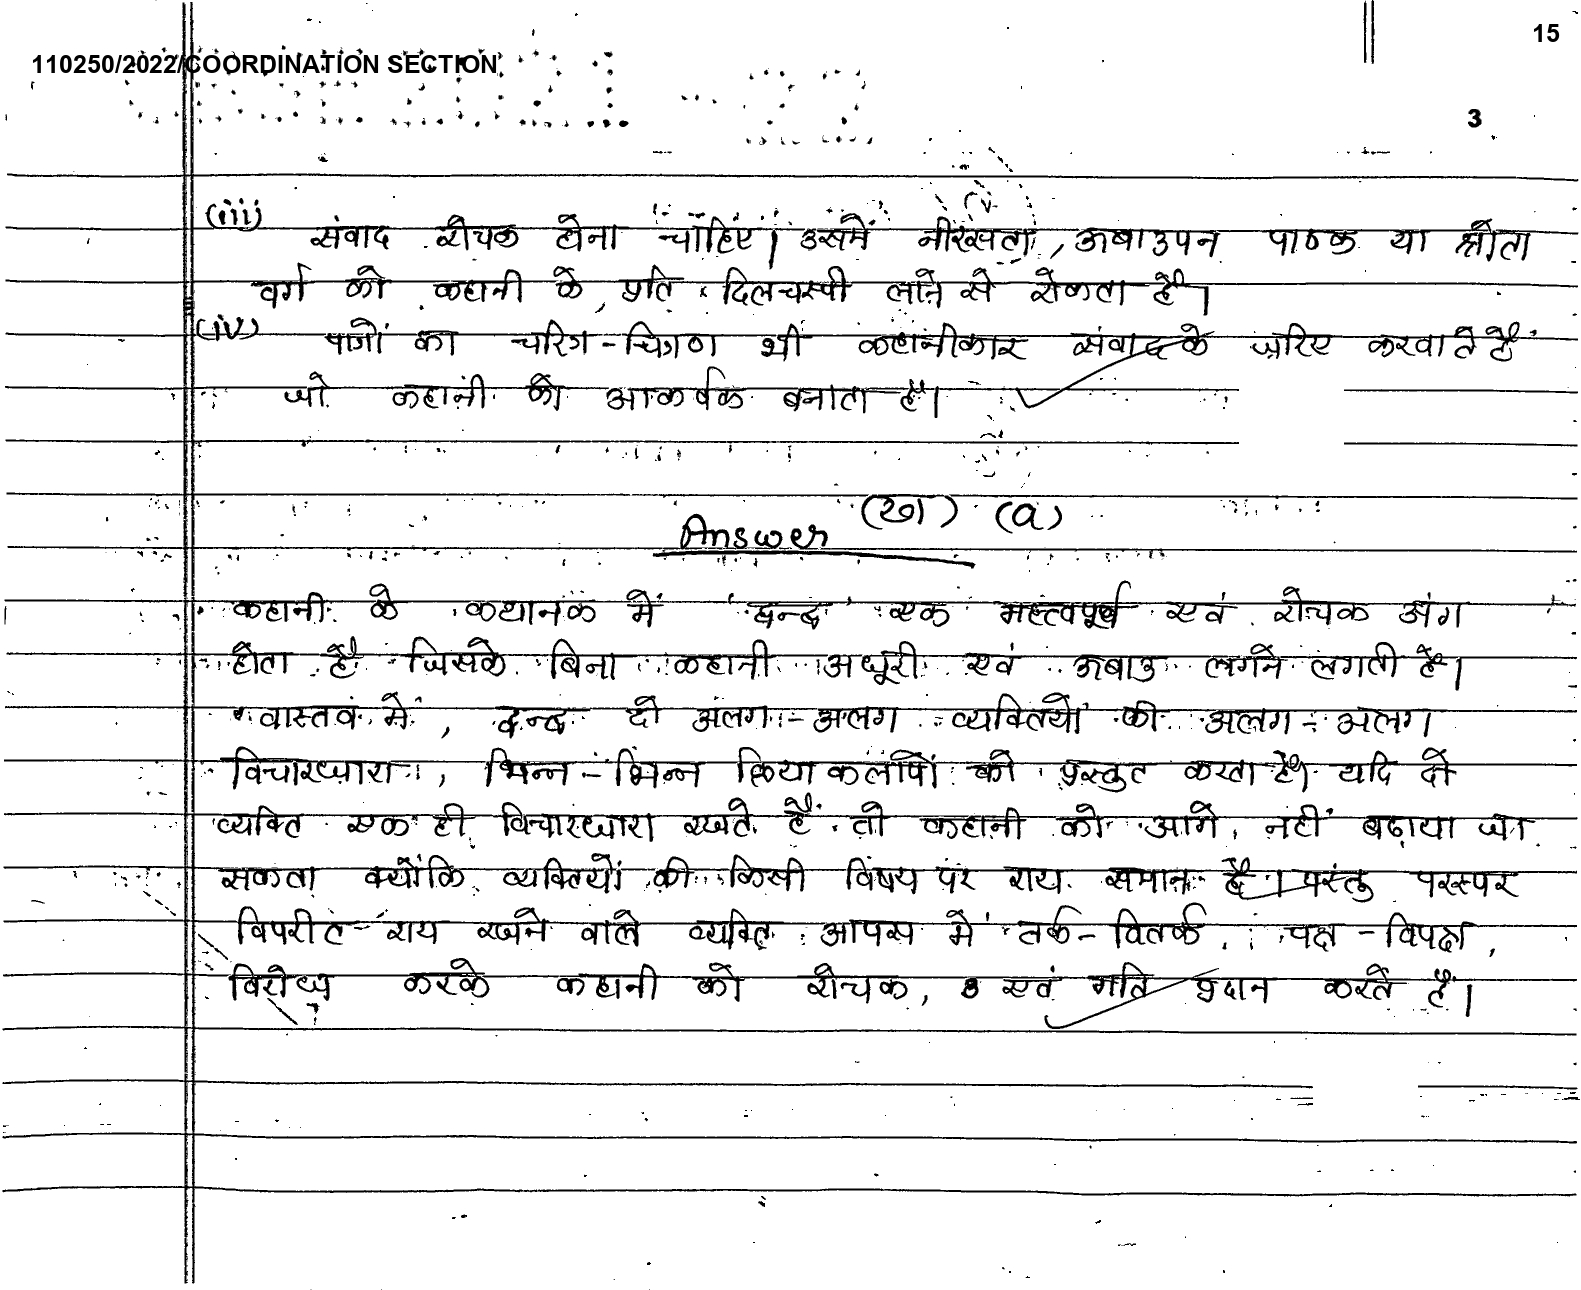 15
110250/2022/COORDINATION SECTION
3
(iii) संवाद रोचक होना चाहिए। उसमें नीरसता, ऊबाउपन पाठक या श्रोता
वर्ग को कहानी के प्रति दिलचस्पी लाने से रोकता है।
(iv) पात्रों का चरित्र-चित्रण भी कहानीकार संवाद के ज़रिए करवाते हैं
जो कहानी को आकर्षक बनाता है।
Answer (ख) (a)
कहानी के कथानक में 'द्वन्द्व' एक महत्त्वपूर्ण एवं रोचक अंग
होता है जिसके बिना कहानी अधूरी एवं ऊबाउ लगने लगती है।
वास्तव में, द्वन्द्व दो अलग-अलग व्यक्तियों की अलग-अलग
विचारधारा, भिन्न-भिन्न क्रियाकलापों को प्रस्तुत करता है। यदि दो
व्यक्ति एक ही विचारधारा रखते हैं तो कहानी को आगे नहीं बढ़ाया जा
सकता क्योंकि व्यक्तियों की किसी विषय पर राय समान है। परंतु परस्पर
विपरीत राय रखने वाले व्यक्ति आपस में तर्क-वितर्क, पक्ष-विपक्ष,
विरोध करके कहानी को रोचक, एवं गति प्रदान करते हैं।